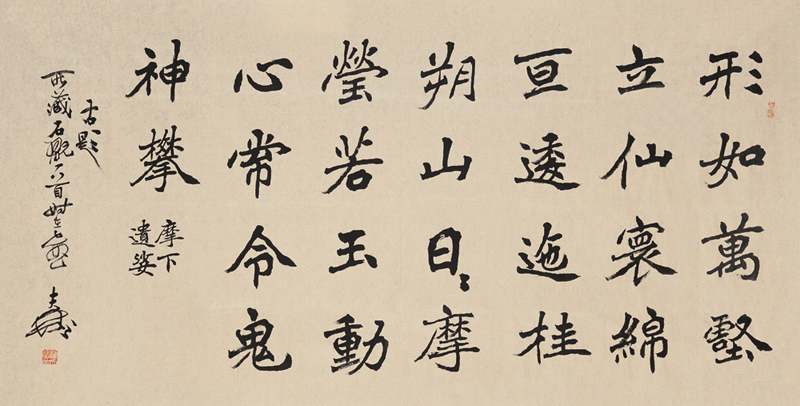 形如萬壑
立仙寰綿
亘逶迤桂
朔山日〻摩
瑩若玉動
心常令鬼
神攀
摩下
遺姿
古題
所藏石